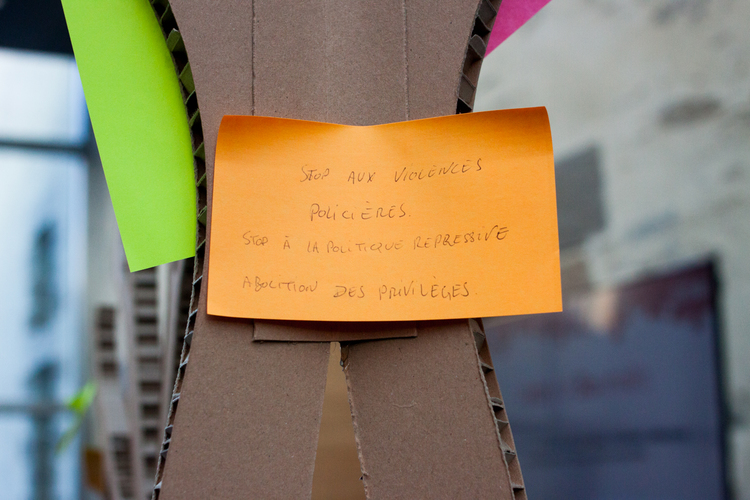 STOP AUX VIOLENCES
POLICIÈRES.
STOP À LA POLITIQUE RÉPRESSIVE
ABOLITION DES PRIVILÈGES.